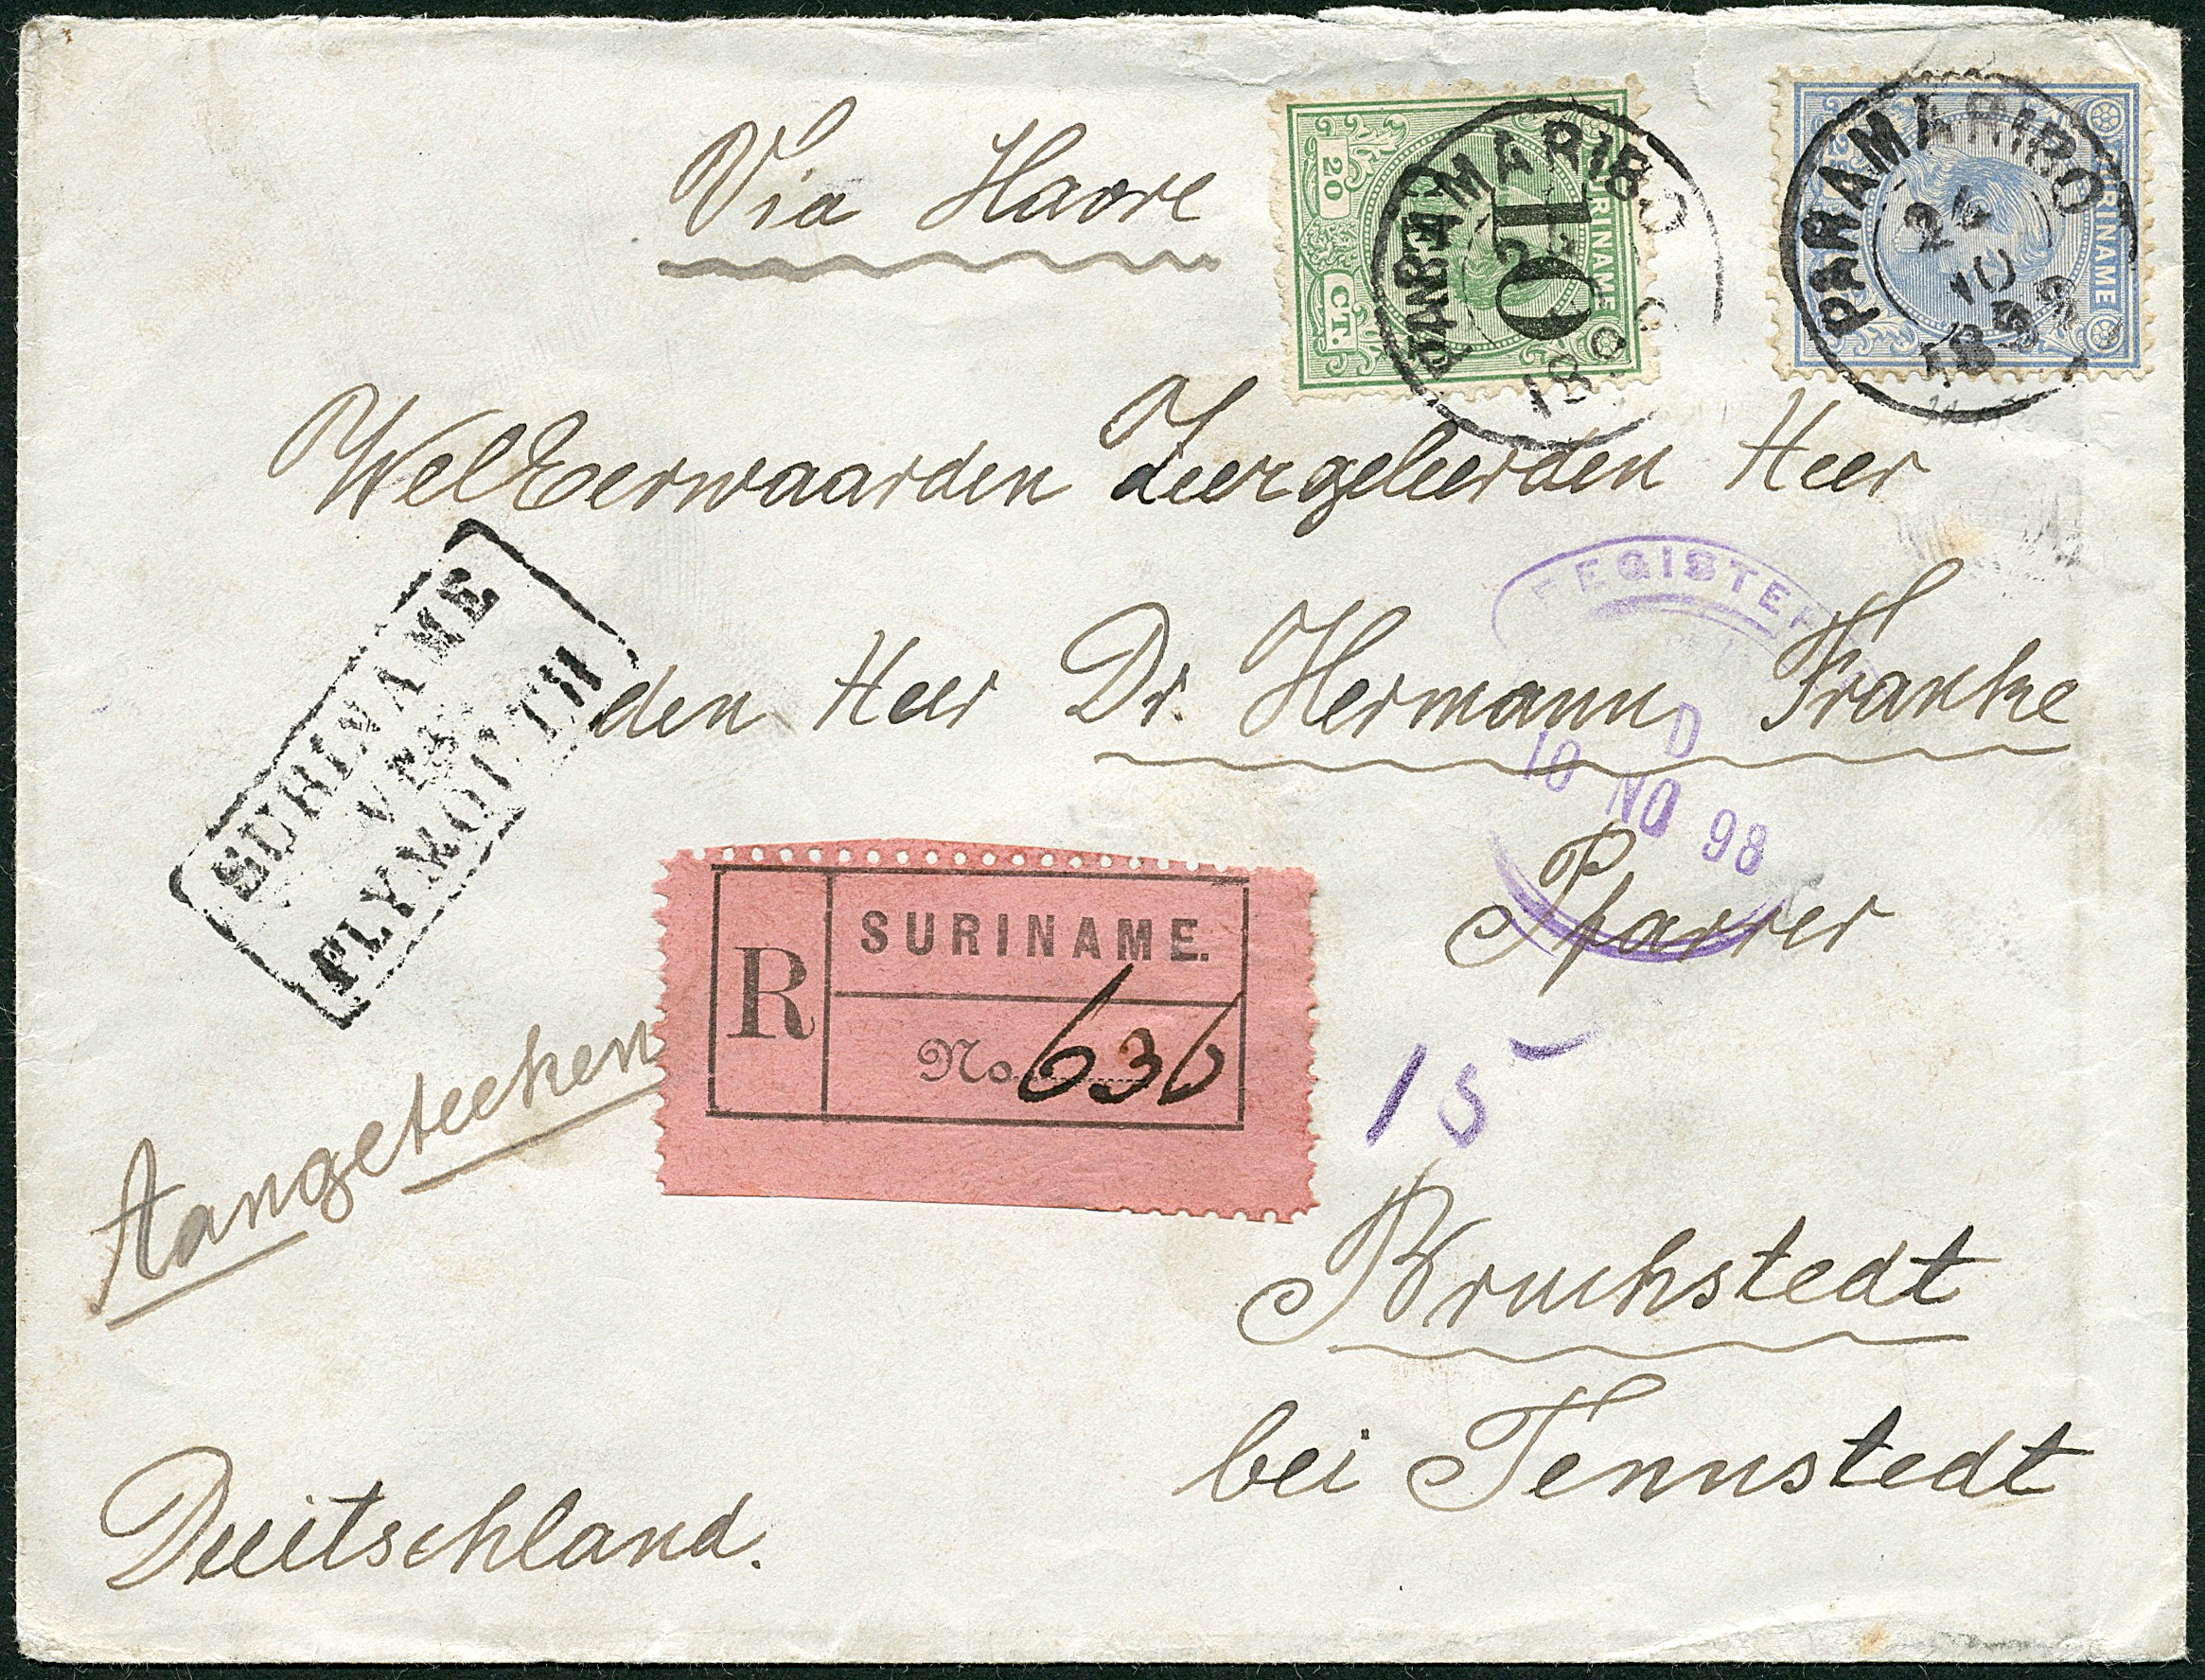 Via Havre
20
CT.
SURINAME
10
CENT
PARAMARIBO
189
SURINAME
PARAMARIBO
24
10
189
WelEerwaarden Zeergeleerden Heer
REGISTER
den Heer Dr. Hermann Franke
D
10 NO 98
SURINAME
VIA
PLYMOUTH
Pfarrer
R
SURINAME.
No. 636
15
Aangeteeken
Bruchstedt
bei Tennstedt
Duitschland.